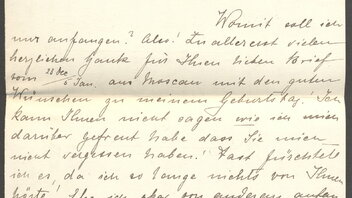 Womit soll ich
nur anfangen? Also! Zu allererst vielen
herzlichen Dank für Ihren lieben Brief
vom 23 Dez. / 5 Jan. aus Moscau mit den guten
Wünschen zu meinem Geburtstag! Ich
kann Ihnen nicht sagen wie ich mich
darüber gefreut habe dass Sie mich
nicht vergessen haben! Fast fürchtete
ich es, da ich so lange nichts von Ihnen
hörte! ich von anderen